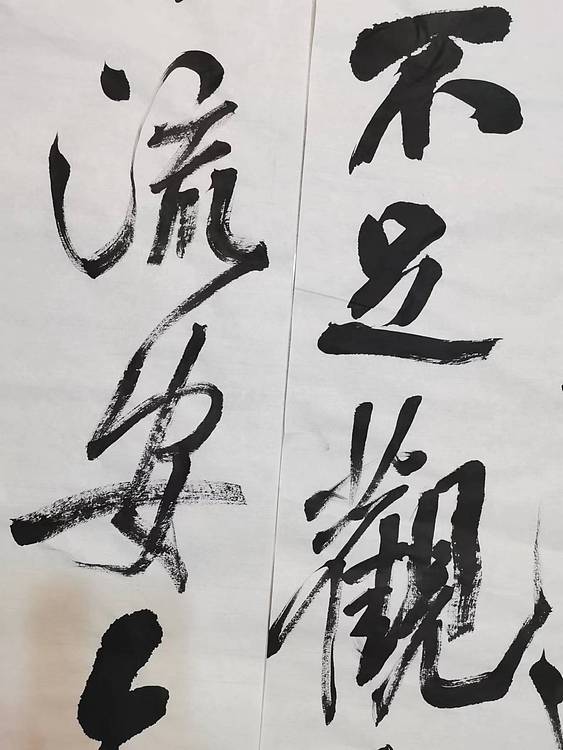 不足觀
流安